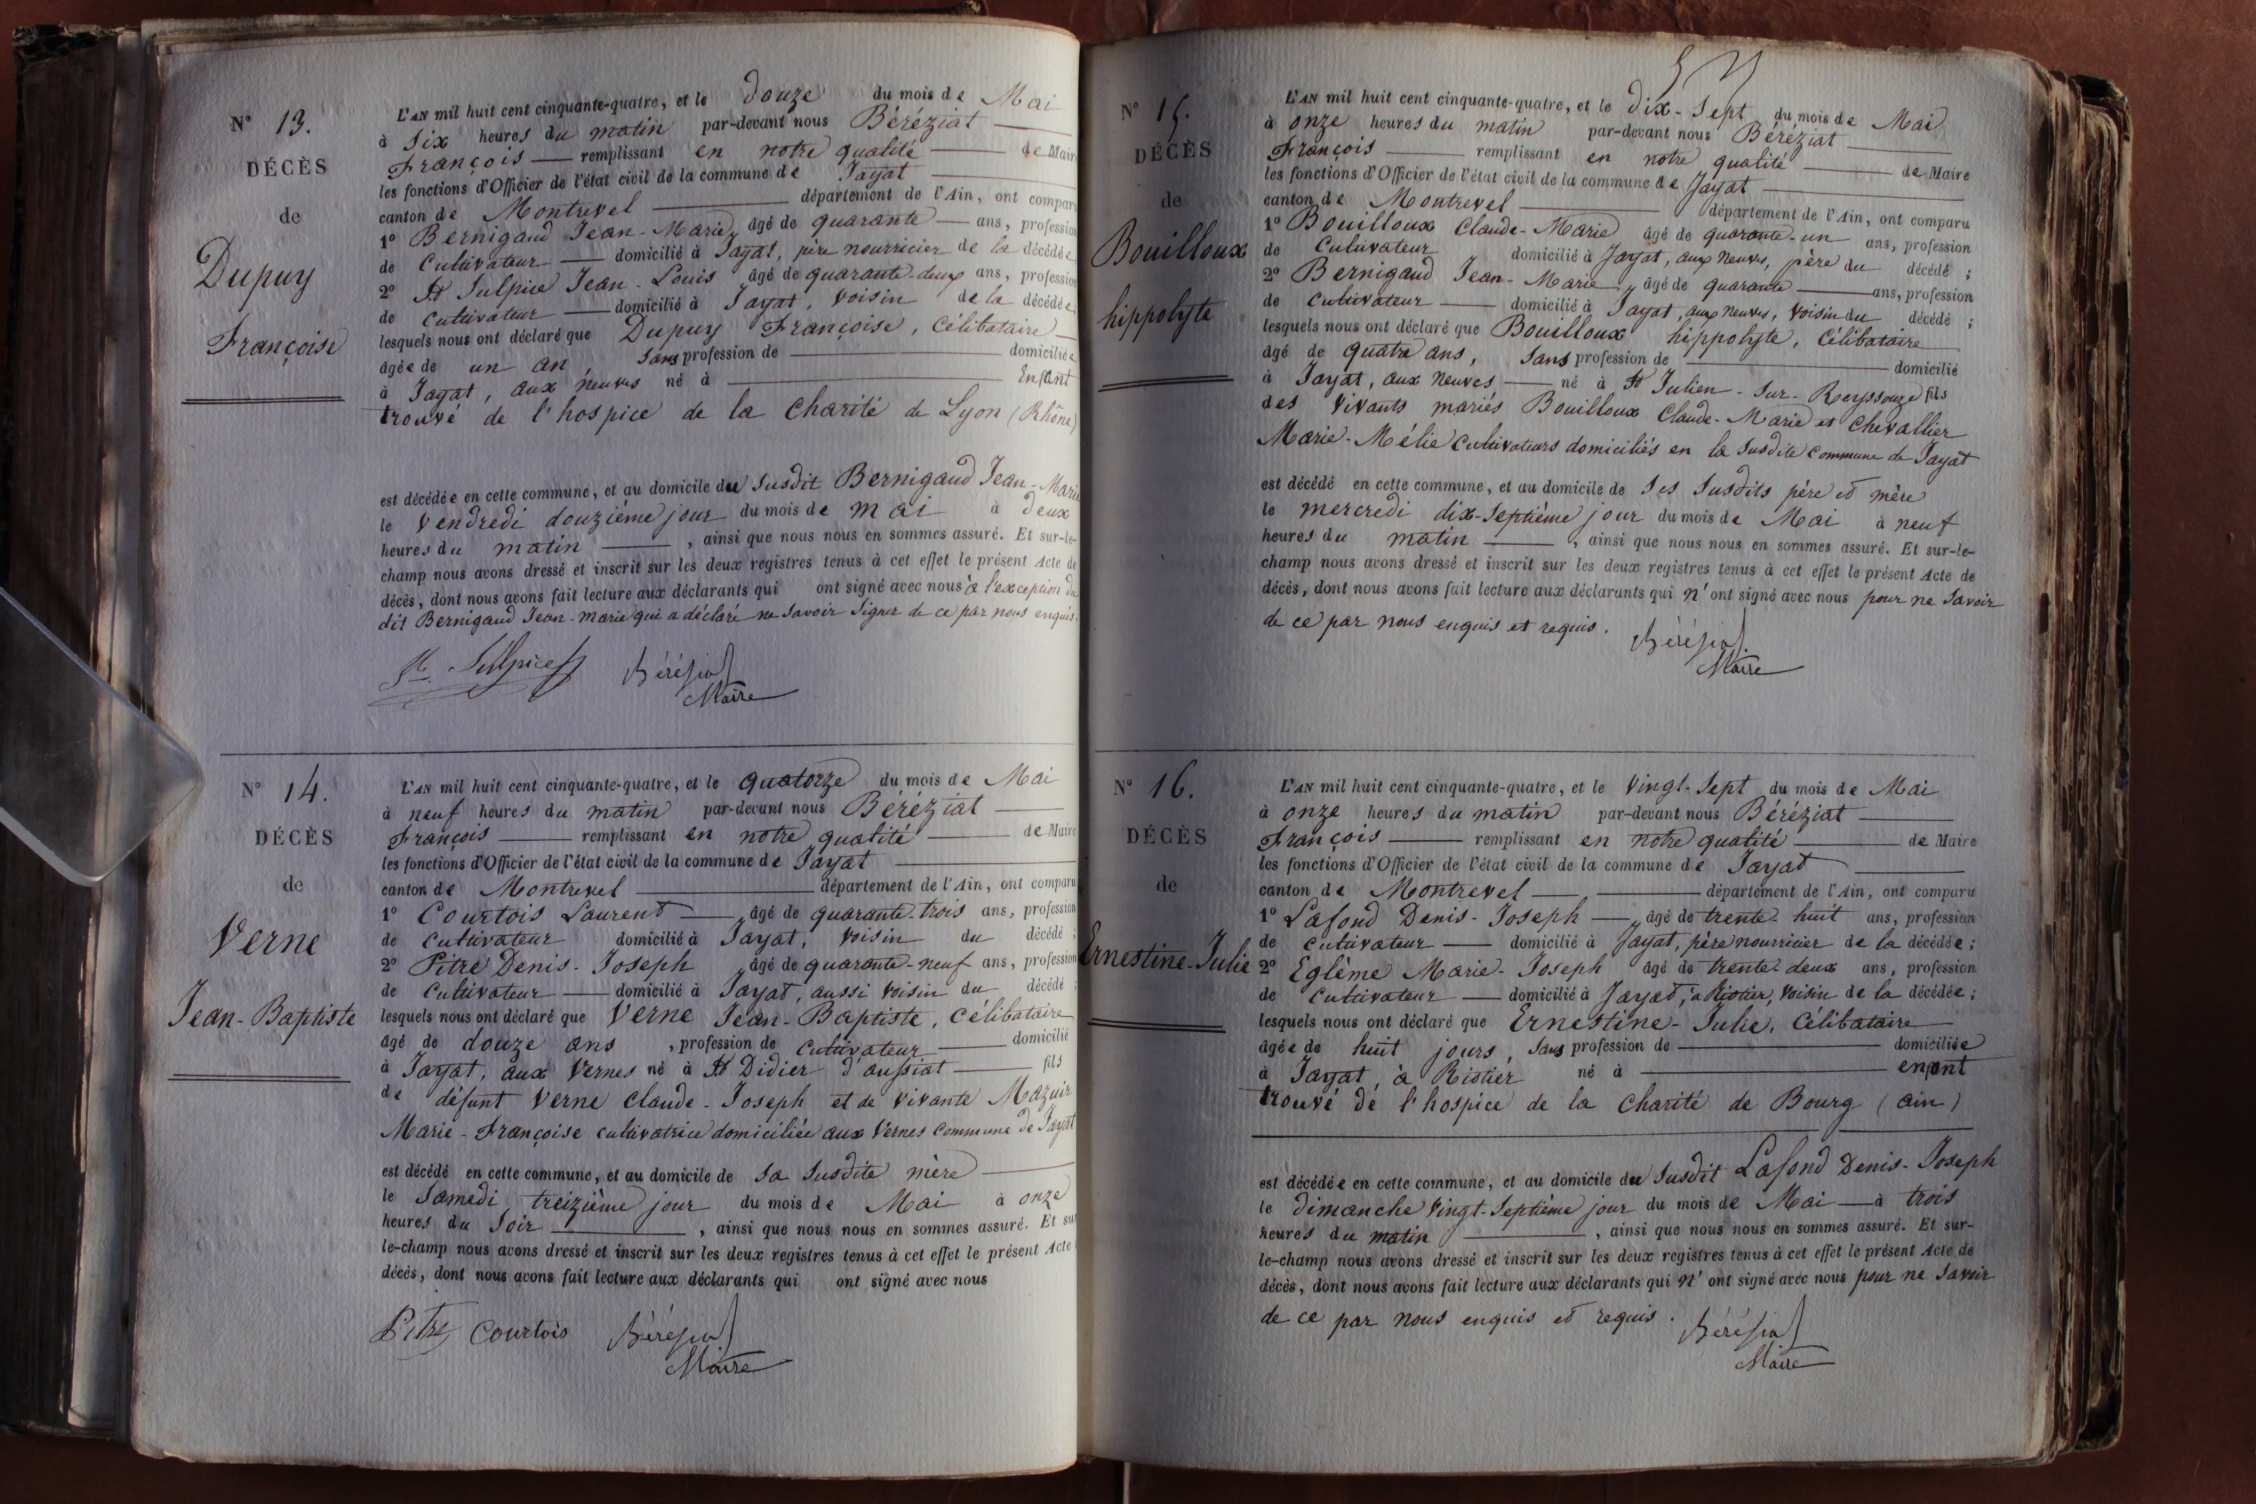 N° 13.
DÉCÈS
de
Dupuy
Françoise
L'AN mil huit cent cinquante-quatre, et le douze du mois de Mai
à six heures du matin par-devant nous Béréziat
François remplissant en notre qualité de Maire
les fonctions d'Officier de l'état civil de la commune de Jayat
canton de Montrevel département de l'Ain, ont comparu
1° Bernigaud Jean-Marie âgé de quarante ans, profession
de cultivateur domicilié à Jayat, père nourricier de la décédée
2° St Sulpice Jean-Louis âgé de quarante-deux ans, profession
de cultivateur domicilié à Jayat, voisin de la décédée
lesquels nous ont déclaré que Dupuy Françoise, célibataire
âgée de un an sans profession de domiciliée
à Jayat, aux neuves né à Enfant
trouvé de l'hospice de la Charité de Lyon (Rhône)
est décédée en cette commune, et au domicile du susdit Bernigaud Jean-Marie
le vendredi douzième jour du mois de mai à deux
heures du matin , ainsi que nous nous en sommes assuré. Et sur-le-
champ nous avons dressé et inscrit sur les deux registres tenus à cet effet le présent Acte de
décès, dont nous avons fait lecture aux déclarants qui ont signé avec nous à l'exception du
dit Bernigaud Jean-Marie qui a déclaré ne savoir signer de ce par nous enquis.
St Sulpice Béréziat
Maire
N° 14.
DÉCÈS
de
Verne
Jean-Baptiste
L'AN mil huit cent cinquante-quatre, et le quatorze du mois de Mai
à neuf heures du matin par-devant nous Béréziat
François remplissant en notre qualité de Maire
les fonctions d'Officier de l'état civil de la commune de Jayat
canton de Montrevel département de l'Ain, ont comparu
1° Courtois Laurent âgé de quarante-trois ans, profession
de cultivateur domicilié à Jayat, voisin du décédé ;
2° Pitre Denis-Joseph âgé de quarante-neuf ans, profession
de cultivateur domicilié à Jayat, aussi voisin du décédé ;
lesquels nous ont déclaré que Verne Jean-Baptiste, célibataire
âgé de douze ans , profession de cultivateur domicilié
à Jayat, aux Vernes né à St Didier d'aussiat fils
de défunt Verne Claude-Joseph et de vivante Mazuir
Marie-Françoise cultivatrice domiciliée aux Vernes commune de Jayat
est décédé en cette commune, et au domicile de sa susdite mère
le samedi treizième jour du mois de Mai à onze
heures du soir , ainsi que nous nous en sommes assuré. Et sur
le-champ nous avons dressé et inscrit sur les deux registres tenus à cet effet le présent Acte
décès, dont nous avons fait lecture aux déclarants qui ont signé avec nous
Pitre Courtois Béréziat
Maire
N° 15.
DÉCÈS
de
Bouilloux
hippolyte
L'AN mil huit cent cinquante-quatre, et le dix-sept du mois de Mai
à onze heures du matin par-devant nous Béréziat
François remplissant en notre qualité de Maire
les fonctions d'Officier de l'état civil de la commune de Jayat
canton de Montrevel département de l'Ain, ont comparu
1° Bouilloux Claude-Marie âgé de quarante-un ans, profession
de cultivateur domicilié à Jayat, aux neuves, père du décédé ;
2° Bernigaud Jean-Marie âgé de quarante ans, profession
de cultivateur domicilié à Jayat, aux neuves, voisin du décédé ;
lesquels nous ont déclaré que Bouilloux hippolyte, célibataire
âgé de quatre ans, sans profession de domicilié
à Jayat, aux neuves né à St Julien-sur-Reyssouze fils
des vivants mariés Bouilloux Claude-Marie et Chevallier
Marie-Mélie cultivateurs domiciliés en la susdite commune de Jayat
est décédé en cette commune, et au domicile de ses susdits père et mère
le mercredi dix-septième jour du mois de Mai à neuf
heures du matin , ainsi que nous nous en sommes assuré. Et sur-le-
champ nous avons dressé et inscrit sur les deux registres tenus à cet effet le présent Acte de
décès, dont nous avons fait lecture aux déclarants qui n'ont signé avec nous pour ne savoir
de ce par nous enquis et requis.
Béréziat
Maire
N° 16.
DÉCÈS
de
Ernestine-Julie
L'AN mil huit cent cinquante-quatre, et le vingt-sept du mois de Mai
à onze heures du matin par-devant nous Béréziat
François remplissant en notre qualité de Maire
les fonctions d'Officier de l'état civil de la commune de Jayat
canton de Montrevel département de l'Ain, ont comparu
1° Lafond Denis-Joseph âgé de trente huit ans, profession
de cultivateur domicilié à Jayat, père nourricier de la décédée ;
2° Eglème Marie-Joseph âgé de trente-deux ans, profession
de cultivateur domicilié à Jayat, à Ristier, voisin de la décédée ;
lesquels nous ont déclaré que Ernestine-Julie, célibataire
âgée de huit jours, sans profession de domiciliée
à Jayat, à Ristier né à enfant
trouvé de l'hospice de la Charité de Bourg (ain)
est décédée en cette commune, et au domicile du susdit Lafond Denis-Joseph
le dimanche vingt-septième jour du mois de Mai à trois
heures du matin , ainsi que nous nous en sommes assuré. Et sur-
le-champ nous avons dressé et inscrit sur les deux registres tenus à cet effet le présent Acte de
décès, dont nous avons fait lecture aux déclarants qui n'ont signé avec nous pour ne savoir
de ce par nous enquis et requis.
Béréziat
Maire